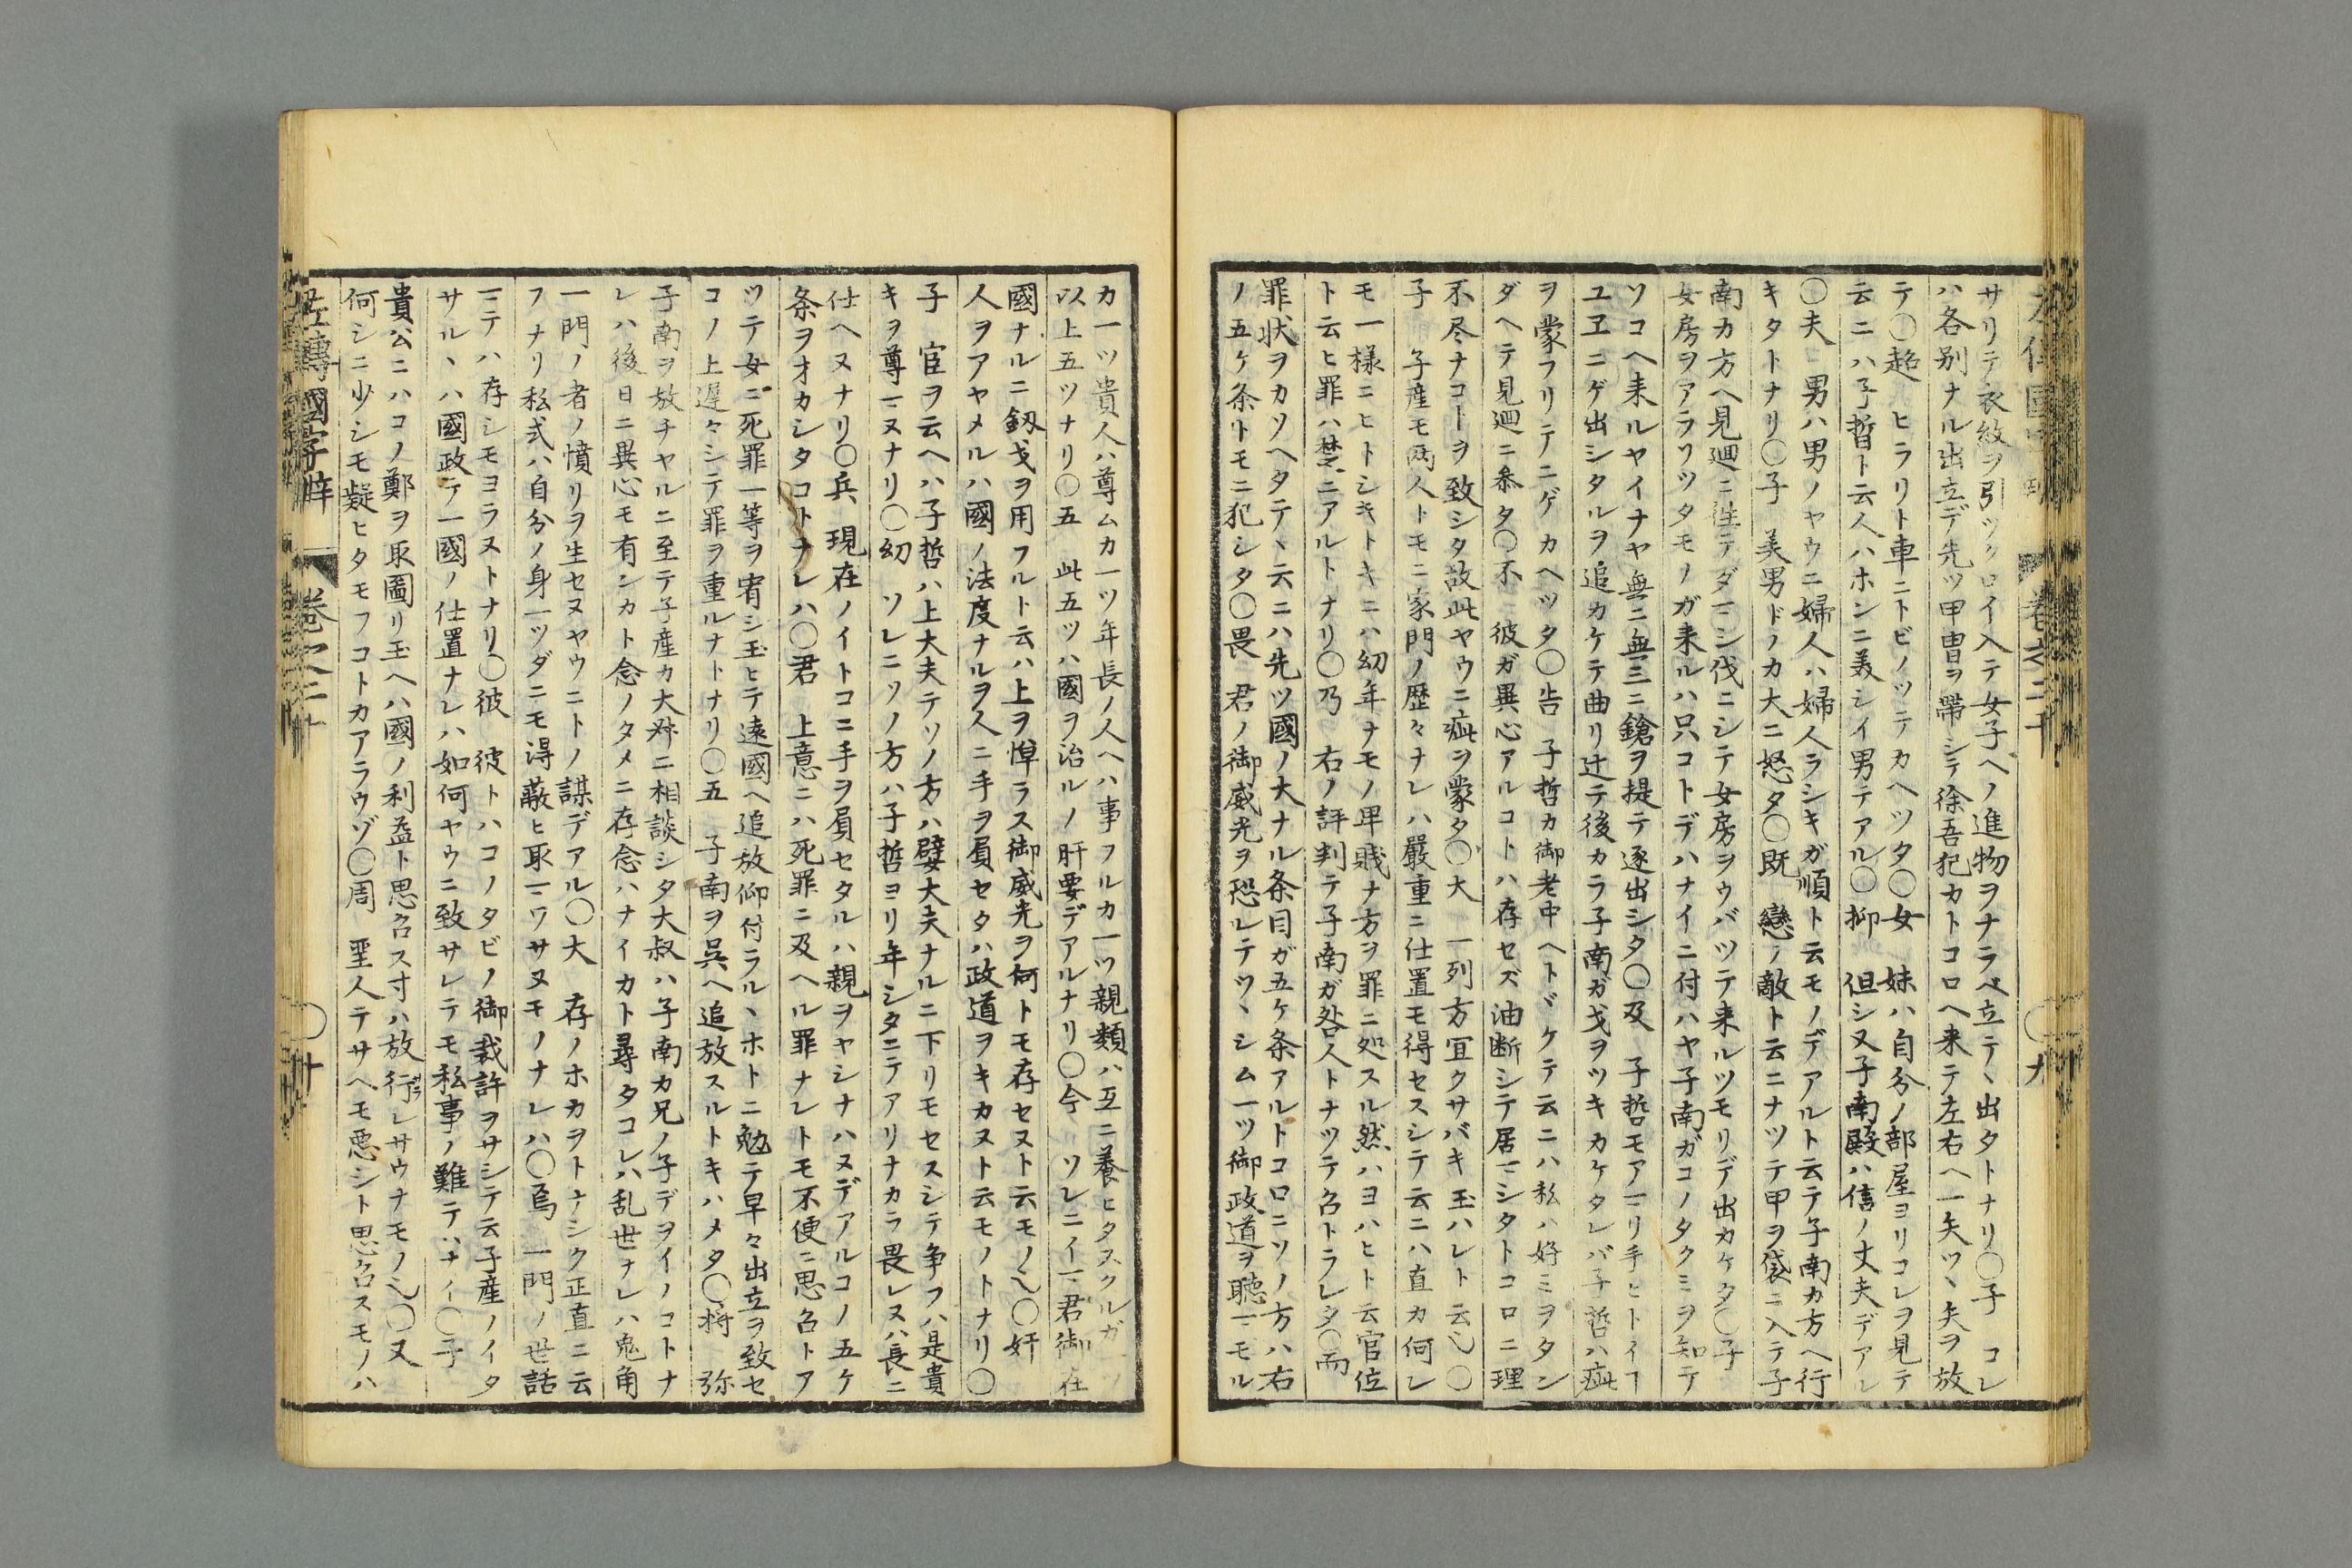 サリテ衣紋ヲ引ツクロイ入テ女子ヘノ進物ヲナラベ立テヽ出タトナリ〇子 コレ
ハ各別ナル出立デ先ツ甲冑ヲ帶シテ徐吾犯カトコロヘ来テ左右ヘ一矢ツヽ矢ヲ放
テ〇超 ヒラリト車ニトビノツテカヘツタ〇女 妹ハ自分ノ部屋ヨリコレヲ見テ
云ニハ子晢ト云人ハホンニ美シイ男テアル〇抑 但シ又子南殿ハ信ノ丈夫デアル
〇夫 男ハ男ノヤウニ婦人ハ婦人ラシキガ順ト云モノデアルト云テ子南カ方ヘ行
キタトナリ〇子 美男ドノカ大ニ怒タ〇既 戀ノ敵ト云ニナツテ甲ヲ袋ニ入テ子
南カ方ヘ見廻ニ往テダマシ伐ニシテ女房ヲウバツテ来ルツモリデ出カケタ〇子
女房ヲアラワツタモノガ来ルハ只コトデハナイニ付ハヤ子南ガコノタクミヲ知テ
ソコヘ来ルヤイナヤ無ニ無三ニ鎗ヲ提テ逐出シタ〇及 子晢モアマリ手ヒトイコ
ユヱニゲ出シタルヲ追カケテ曲リ辻テ後カラ子南ガ戈ヲツキカケタレバ子晢ハ疵
ヲ蒙フリテニゲカヘツタ〇告 子晢カ御老中ヘトヾケテ云ニハ私ハ好ミヲタン
ダヘテ見廻ニ参タ〇不 彼ガ異心アルコトハ存セズ油断シテ居マシタトコロニ理
不尽ナコトヲ致シタ故此ヤウニ疵ヲ蒙タ〇大 一列方冝クサバキ玉ハレト云〇
子 子産モ両人トモニ家門ノ歴々ナレハ嚴重ニ仕置モ得セスシテ云ニハ直カ何レ
モ一様ニヒトシキトキニハ幼年ナモノ卑賎ナ方ヲ罪ニ処スル然ハヨハヒト云官位
ト云ヒ罪ハ楚ニアルトナリ〇乃 右ノ評判テ子南ガ咎人トナツテ召トラレタ〇而
罪状ヲカソヘタテヽ云ニハ先ツ國ノ大ナル条目ガ五ケ条アルトコロニソノ方ハ右
ノ五ケ条トモニ犯シタ〇畏 君ノ御威光ヲ恐レテツヽシム一ツ御政道ヲ聴マモル
カ一ツ貴人ハ尊ムカ一ツ年長ノ人ヘハ事フルカ一ツ親類ハ互ニ養ヒタスクルガ一ツ
以上五ツナリ〇五 此五ツハ國ヲ治ルノ肝要デアルナリ〇今 ソレニイマ君御在
國ナルニ釼戈ヲ用フルト云ハ上ヲ憚ラス御威光ヲ何トモ存セヌト云モノ〇奸
人ヲアヤメルハ國ノ法度ナルヲ人ニ手ヲ負セタハ政道ヲキカヌト云モノトナリ〇
子 官ヲ云ヘハ子晢ハ上大夫テソノ方ハ嬖大夫ナルニ下リモセスシテ争フハ是貴
キヲ尊マヌナリ〇幼 ソレニソノ方ハ子晢ヨリ年シタニテアリナカラ畏レヌハ長ニ
仕ヘヌナリ〇兵 現在ノイトコニ手ヲ負セタルハ親ヲヤシナハヌデアルコノ五ケ
条ヲオカシタコトナレハ〇君 上意ニハ死罪ニ及ヘル罪ナレトモ不便ニ思召トア
ツテ女ニ死罪一等ヲ宥シ玉ヒテ遠國ヘ追放仰付ラルヽホトニ勉テ早々出立ヲ致セ
コノ上遅々シテ罪ヲ重ルナトナリ〇五 子南ヲ呉ヘ追放スルトキハメタ〇将 弥
子南ヲ放チヤルニ至テ子産カ大叔ニ相談シタ大叔ハ子南カ兄ノ子デヲイノコトナ
レハ後日ニ異心モ有ンカト念ノタメニ存念ハナイカト尋タコレハ乱世ナレハ兎角
一門ノ者ノ憤リヲ生セヌヤウニトノ謀デアル〇大 存ノホカヲトナシク正直ニ云
フナリ私式ハ自分ノ身一ツダニモ得蔽ヒ取マワサヌモノナレハ〇焉 一門ノ世話
マテハ存シモヨラヌトナリ〇彼 彼トハコノタビノ御裁許ヲサシテ云子産ノイタ
サルヽハ國政テ一國ノ仕置ナレハ如何ヤウニ致サレテモ私事ノ難テハナイ〇子
貴公ニハコノ鄭ヲ取圖リ玉ヘハ國ノ利益ト思召ス寸ハ放行レサウナモノ〇又
何シニ少シモ疑ヒタモフコトカアラウゾ〇周 聖人テサヘモ惡シト思召スモノハ
左傳國字辯 卷之二十 〇十
卷之二十 〇九